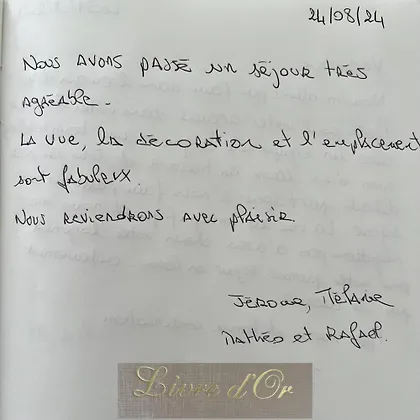 24/08/24
Nous avons passé un séjour très
agréable.
La vue, la décoration et l'emplacement
sont fabuleux.
Nous reviendrons avec plaisir.
Jérôme, Mélanie
Mathéo et Rafael.
Livre d'Or